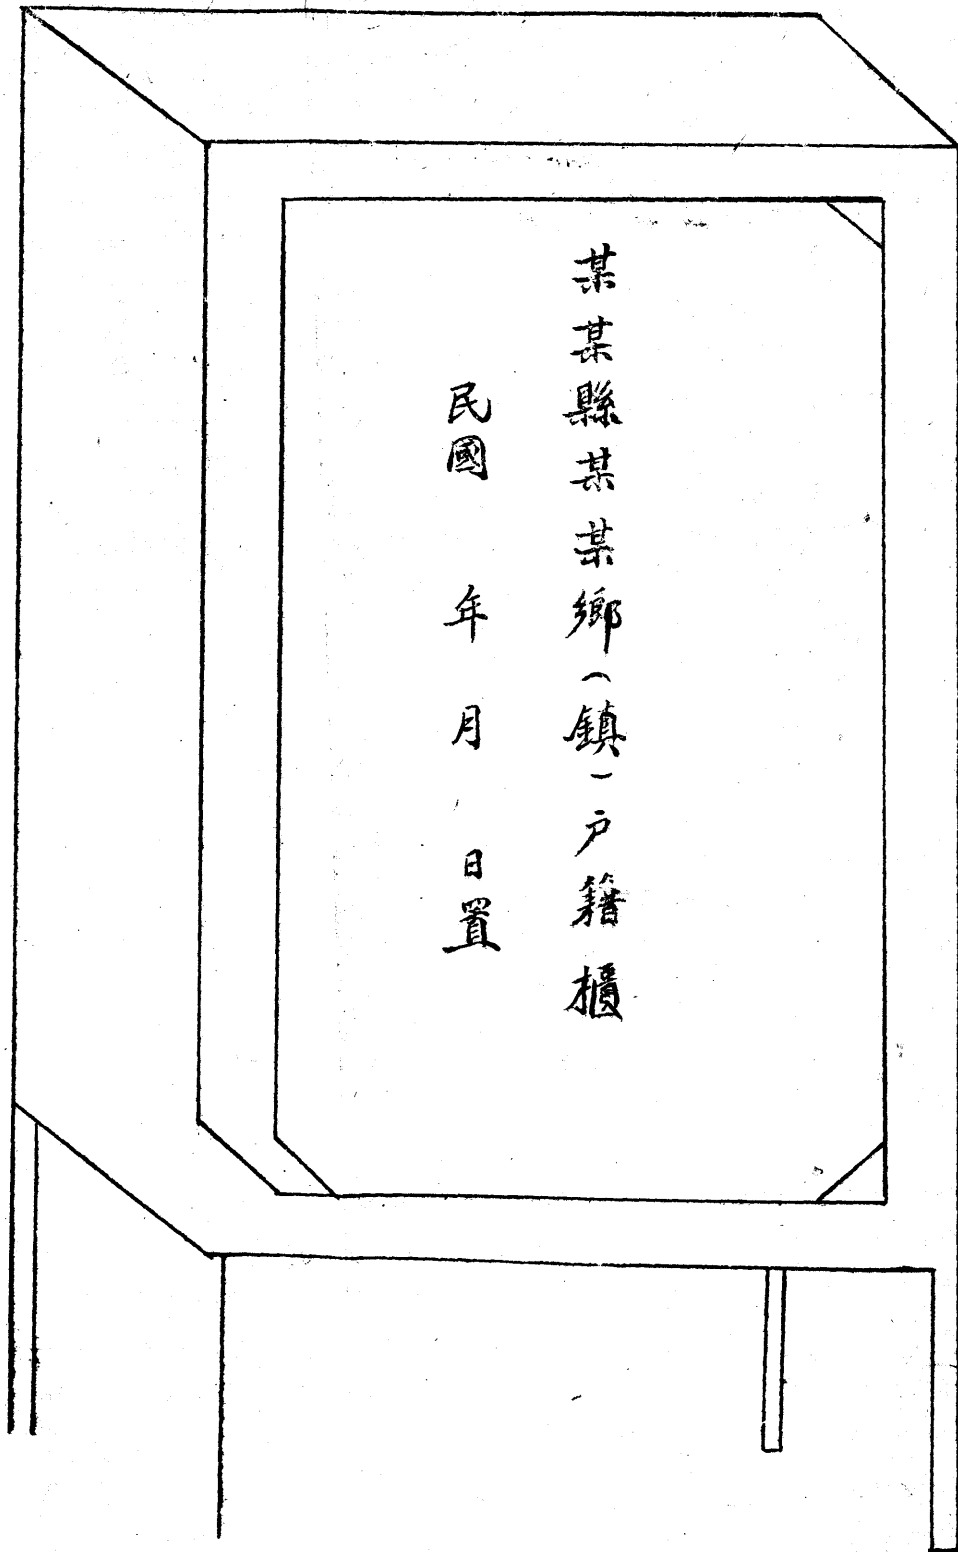 某某縣某某鄉(鎮)戶籍櫃
民國 年 月 日置